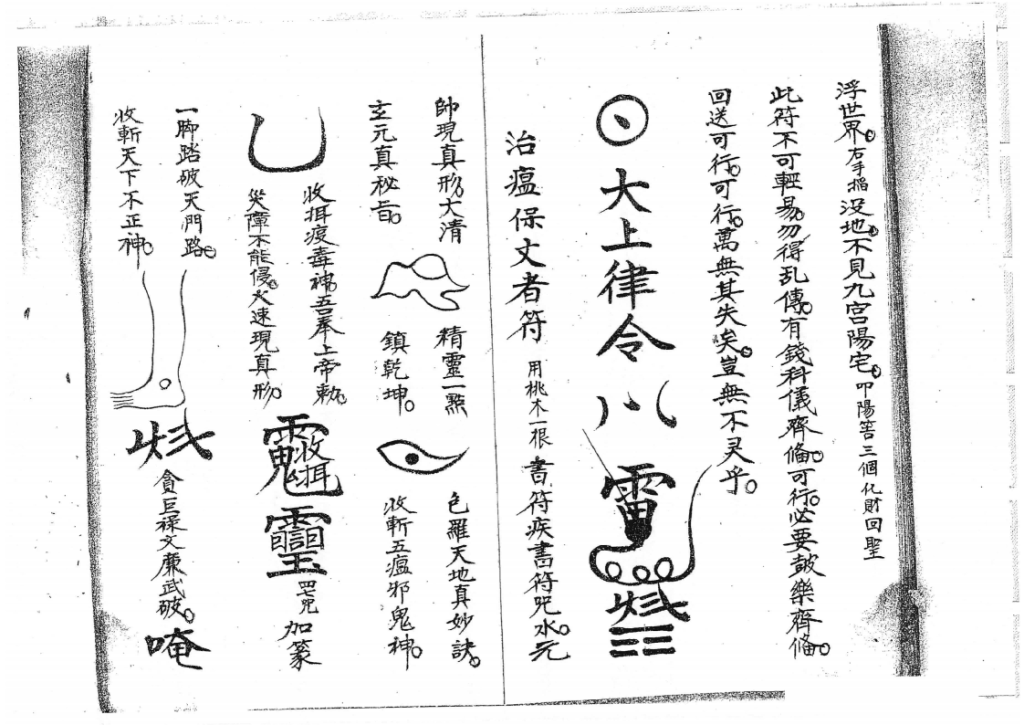 浮世界。右手搯没地。不見九宮陽宅。叩陽筶三個化財回聖
此符不可輕易。勿得乱傳。有錢科儀齊僃。可行。必要皷樂齊僃。
回送可行。可行。萬無其失矣。豈無不灵乎。
大上律令
治瘟保丈者符 用桃木一根 書符疾書符咒水。元
帥現真形。大清 精靈一㸃 色羅天地真妙訣。
玄元真秘旨。 鎮乾坤。 收斬五瘟邪鬼神。
收捪疫毒神。吾奉上帝勅。
災障不能侵。火速現真形。
加篆
一脚踏破天門路。
收斬天下不正神。
貪巨禄文廉武破。 唵